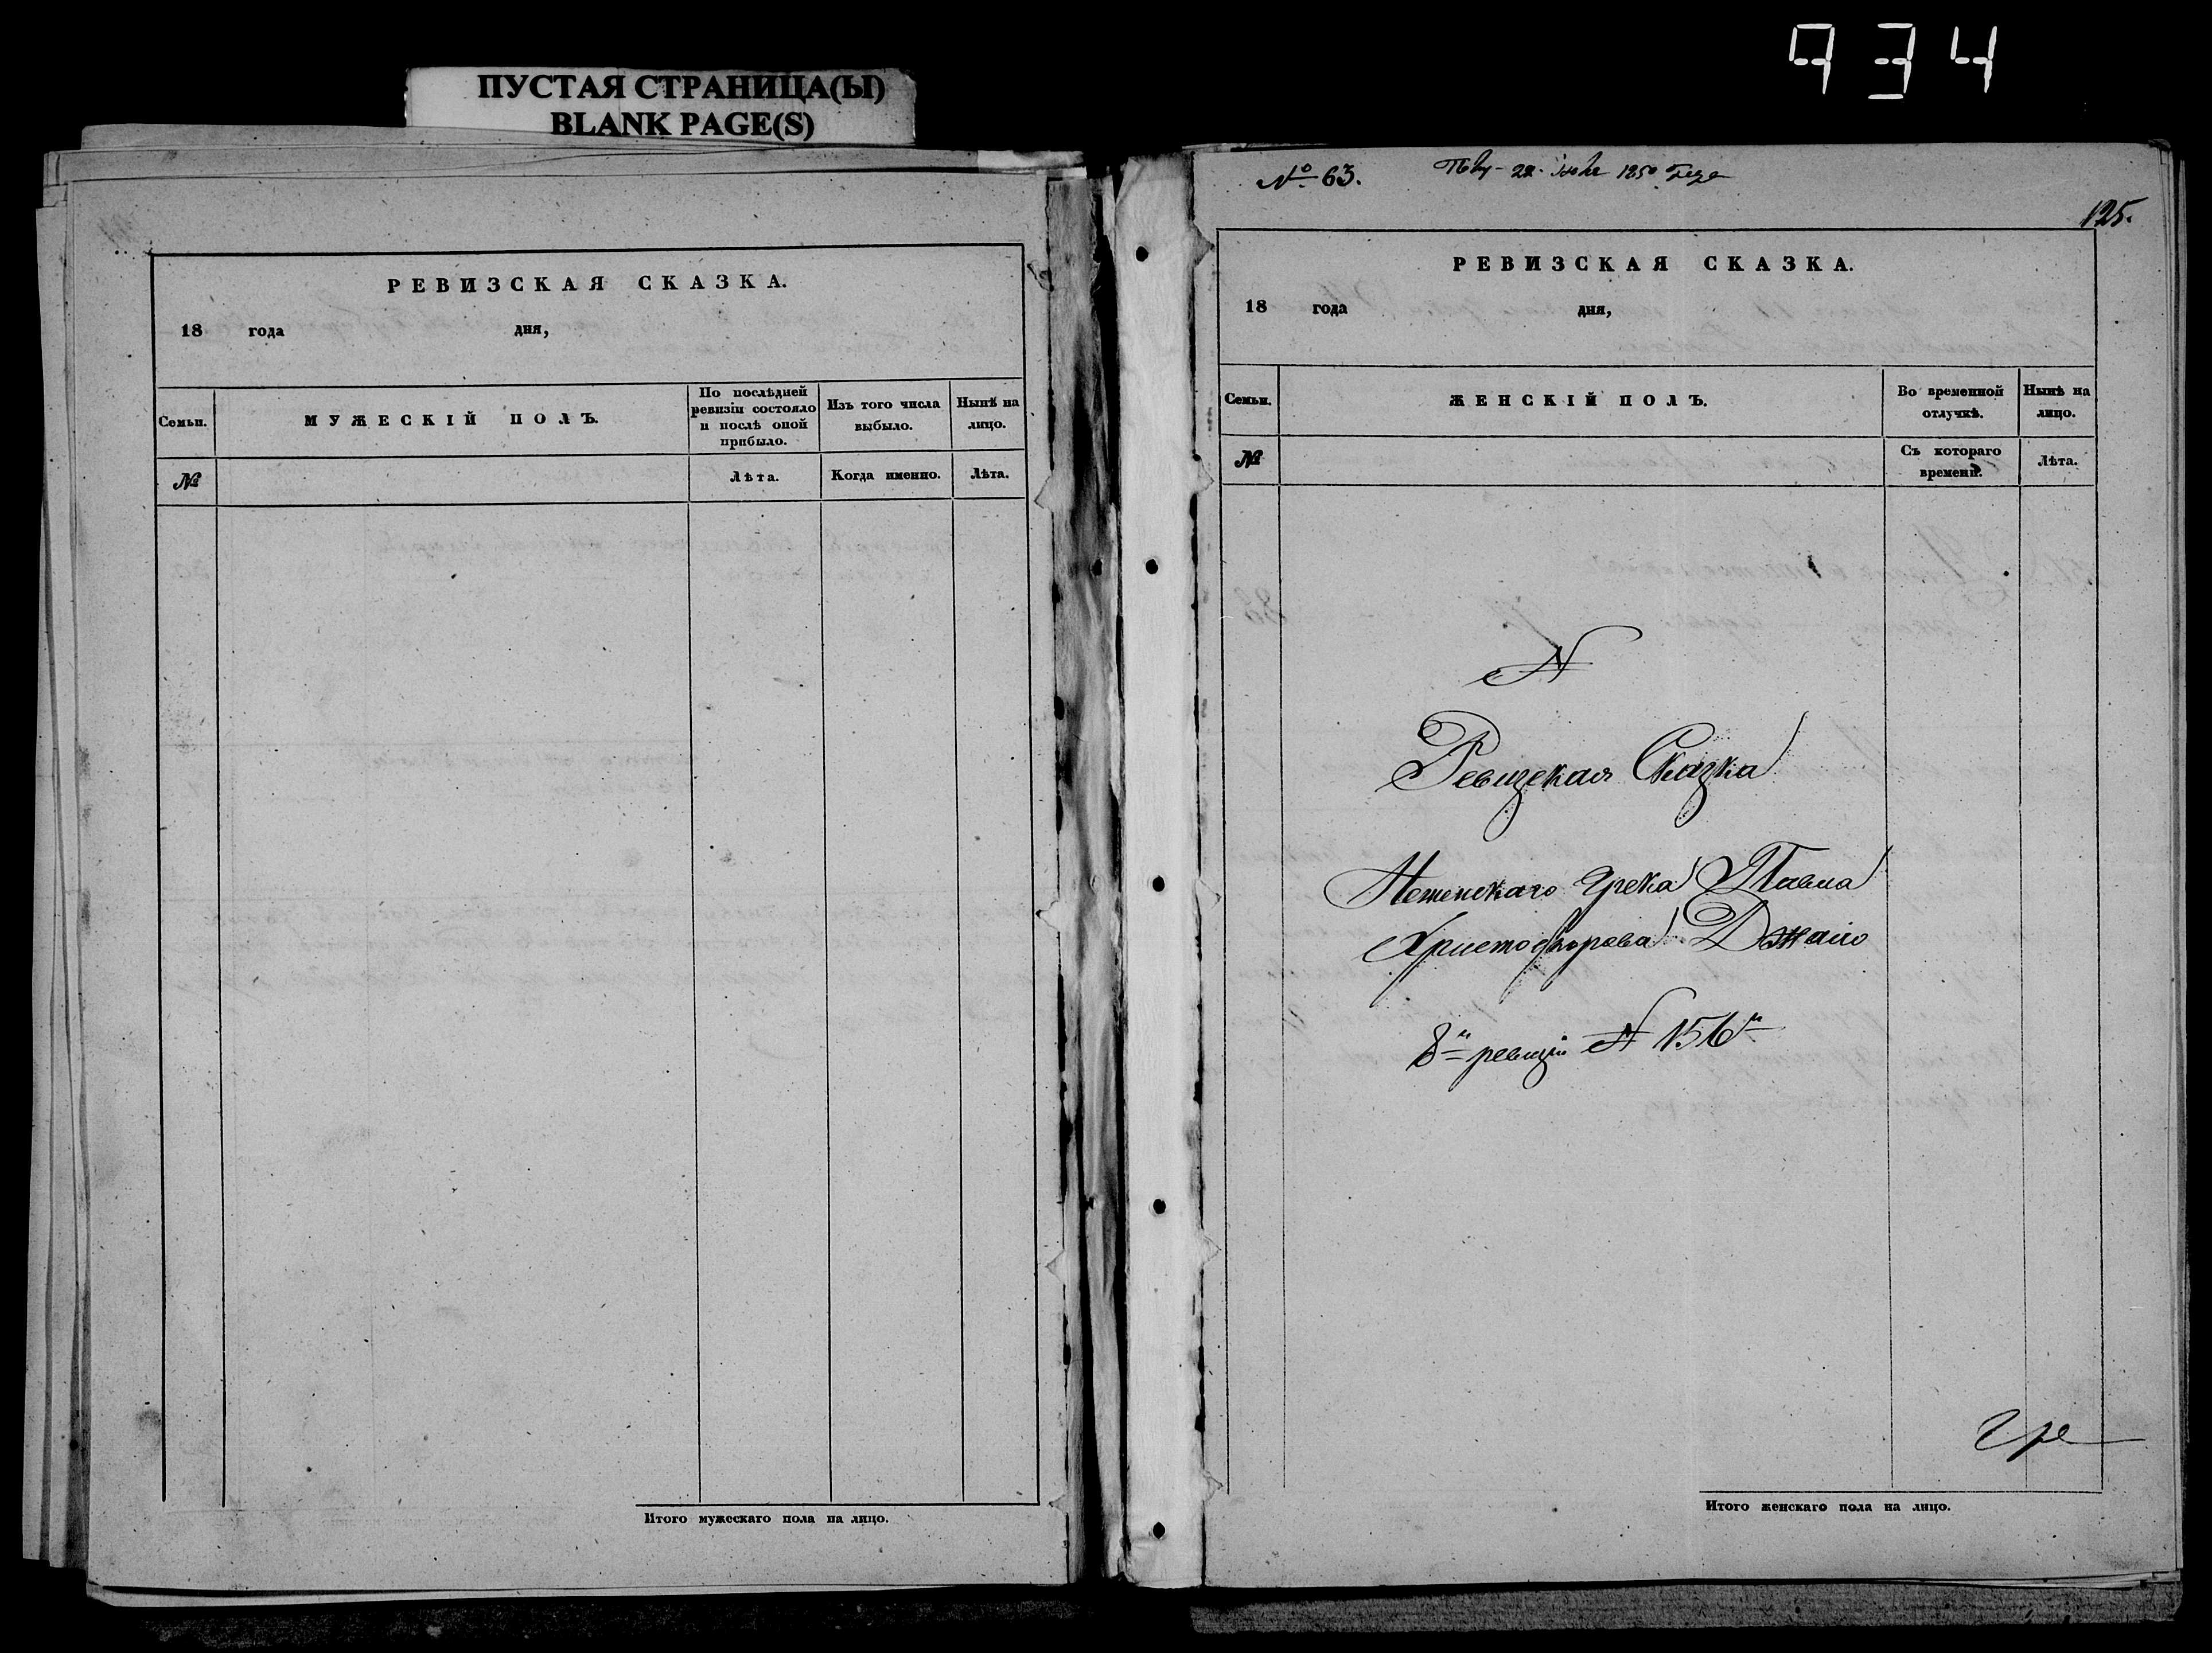 934
ПУСТАЯ СТРАНИЦА(Ы)
BLANK PAGE(S)
РЕВИЗСКАЯ СКАЗКА.
18 года дня,
Семьи.
МУЖЕСКІЙ ПОЛЪ.
По послѣдней ревизіи состояло и послѣ оной прибыло.
Изъ того числа выбыло.
Нынѣ на лицо.
№
Лѣта.
Когда именно.
Лѣта.
Итого мужескаго пола на лицо.
№ 63.
22 1850 года
125.
РЕВИЗСКАЯ СКАЗКА.
18 года дня,
Семьи.
ЖЕНСКІЙ ПОЛЪ.
Во временной отлучкѣ.
Нынѣ на лицо.
№
Съ котораго времени.
Лѣта.
N
Ревизская Сказка
Неженскаго Грека Павла
Христофорова
8й ревизіи N 156й
Итого женскаго пола на лицо.